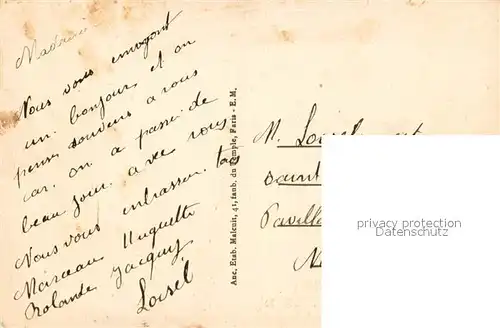 Nous vous envoyont
un bonjour et on
penses souvens a vous
car on a passé de
beau jour. avec vous
Nous vous embrassen tous
Marceau Huguette
Rolande Jacquy
Loisel
Anc. Etab. Malcuit, 41, faub. du Temple, Paris - E.M.
M. Loisel et
saint
Pavill
privacy protection
datenschutz